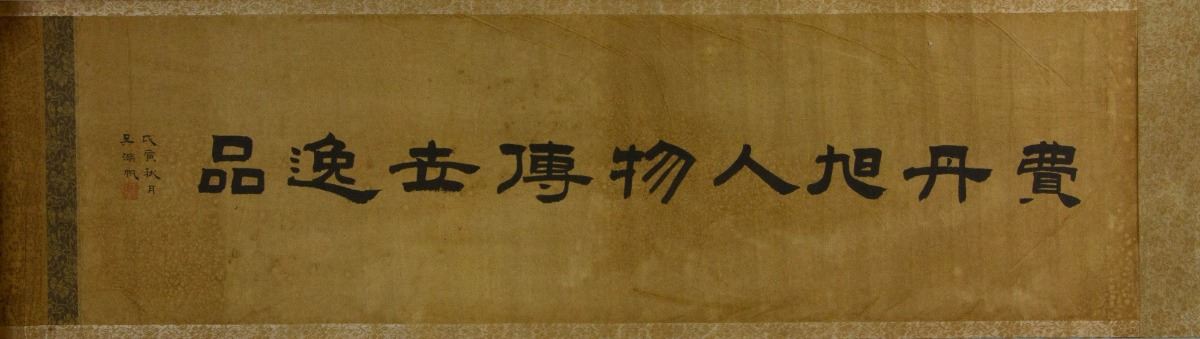 費丹旭人物傳世逸品
戊寅秋月
吳湖帆